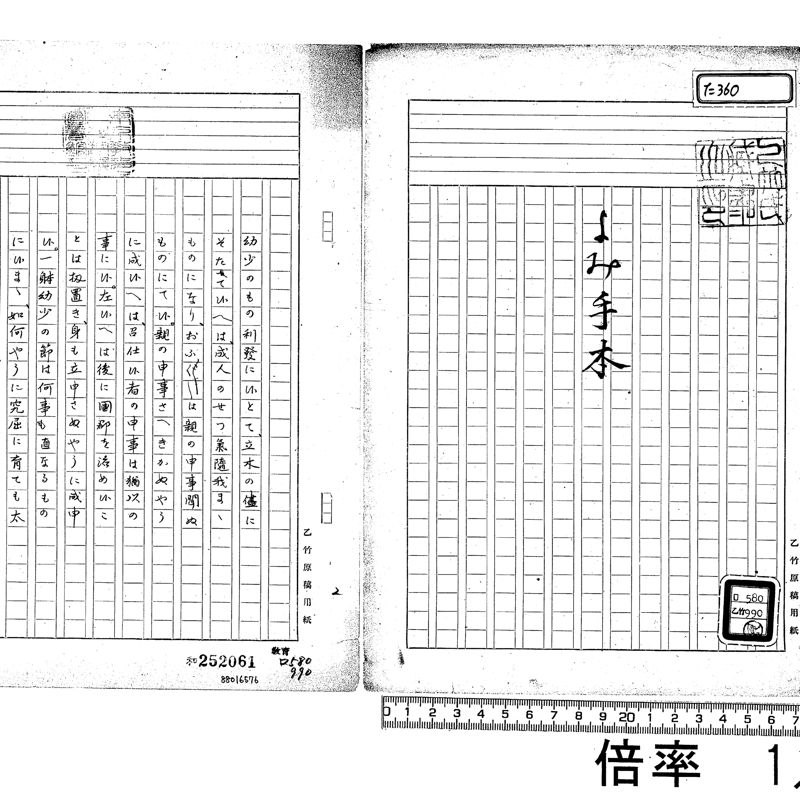 T=360
よみ手本
乙竹原稿用紙
ロ 580
乙竹990
幼少のもの利發にいとて、立木の儘に
そだてい へは、成人のせつ氣随我まゝ
ものになり、おふくは親の申事聞ぬ
ものにてい。親の申事さへきかぬやう
に成いへは、召仕い者の申事は猶以の
事にい。左いへは後に國郡を治めいこ
とは扨置き、身も立申さぬやうに成申
い。一躰幼少の節は何事も直なるもの
にいまゝ、如何やうに究屈に育ても太
乙竹原稿用紙
2
和252061
教育
ロ580
990
88016576
0 1 2 3 4 5 6 7 8 9 20 1 2 3 4 5 6 7
倍率 1